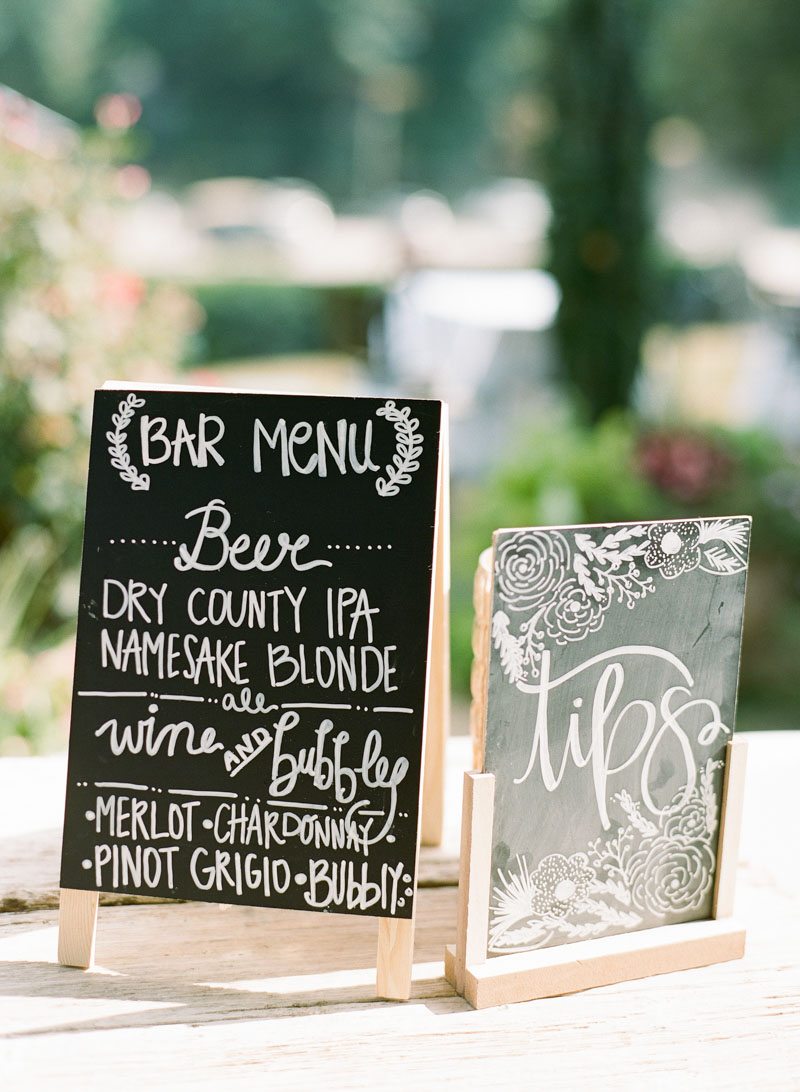 BAR MENU
Beer
DRY COUNTY IPA
NAMESAKE BLONDE
ale
wine AND bubbly
•MERLOT•CHARDONNAY•
•PINOT GRIGIO•BUbblY•
tips